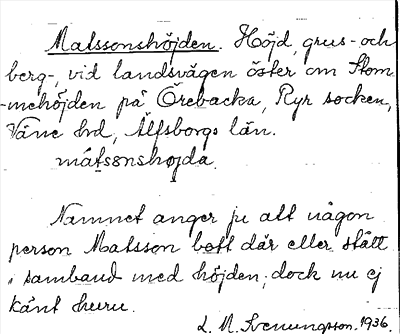 Matssonshöjden. Höjd, grus- och
berg-, vid landsvägen öster om Stom
-mehöjden på Örebacka, Ryr socken,
Väne hd, Älfsborgs län.
mátsonshøjda.
Namnet anger ju att någon
person Matsson bott där eller stått
i samband med höjden, dock nu ej
känt huru.
L. M. Svenungsson. 1936.